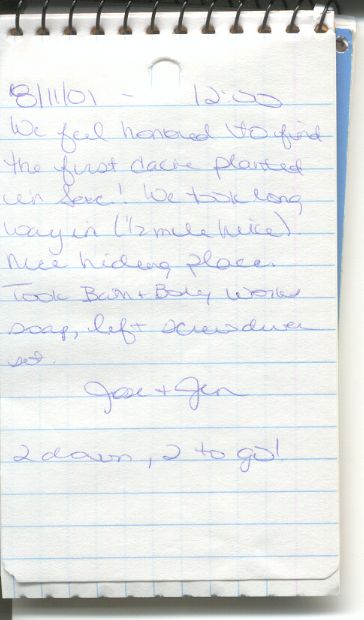 8/11/01 - 12:00
We feel honored to find
the first cache planted
in
We took long
way in (1/2 mile hike)
Nice hiding place.
Took Bath + Body Works
soap, left screwdriver
set.
+ Jen
2 down, 2 to go!